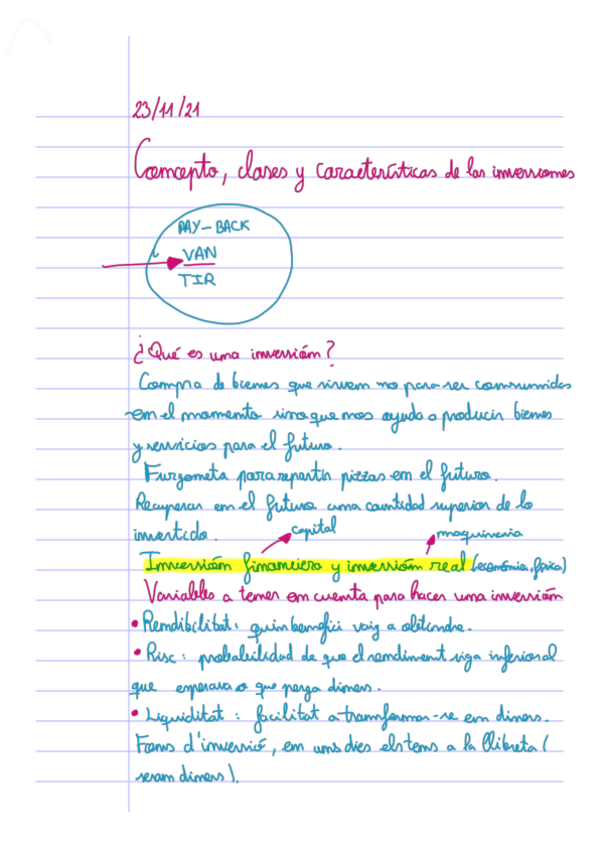 23/11/21
Concepto, clases y características de las inversiones
PAY-BACK
VAN
TIR
¿Qué es una inversión?
Compra de bienes que sirven no para ser consumidos
en el momento sino que nos ayuda a producir bienes
y servicios para el futuro.
Furgoneta para repartir pizzas en el futuro.
Recuperar en el futuro una cantidad superior de lo
invertido.
capital
maquinaria
Inversión financiera y inversión real (económia, física)
Variables a tener en cuenta para hacer una inversión
• Rendibilitat: quin benefici vaig a obtindre.
• Risc: probabilidad de que el rendiment siga inferior al
que esperava o que perga diners.
• Liquiditat: facilitat a transformar-se en diners.
Fons d'inversió, em uns dies els tens a la llibreta (
seran diners).